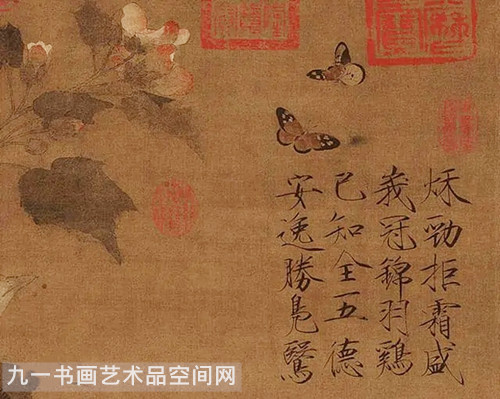 秋勁拒霜盛
峩冠錦羽鷄
已知全五德
安逸勝鳧鷖
九一书画艺术品空间网